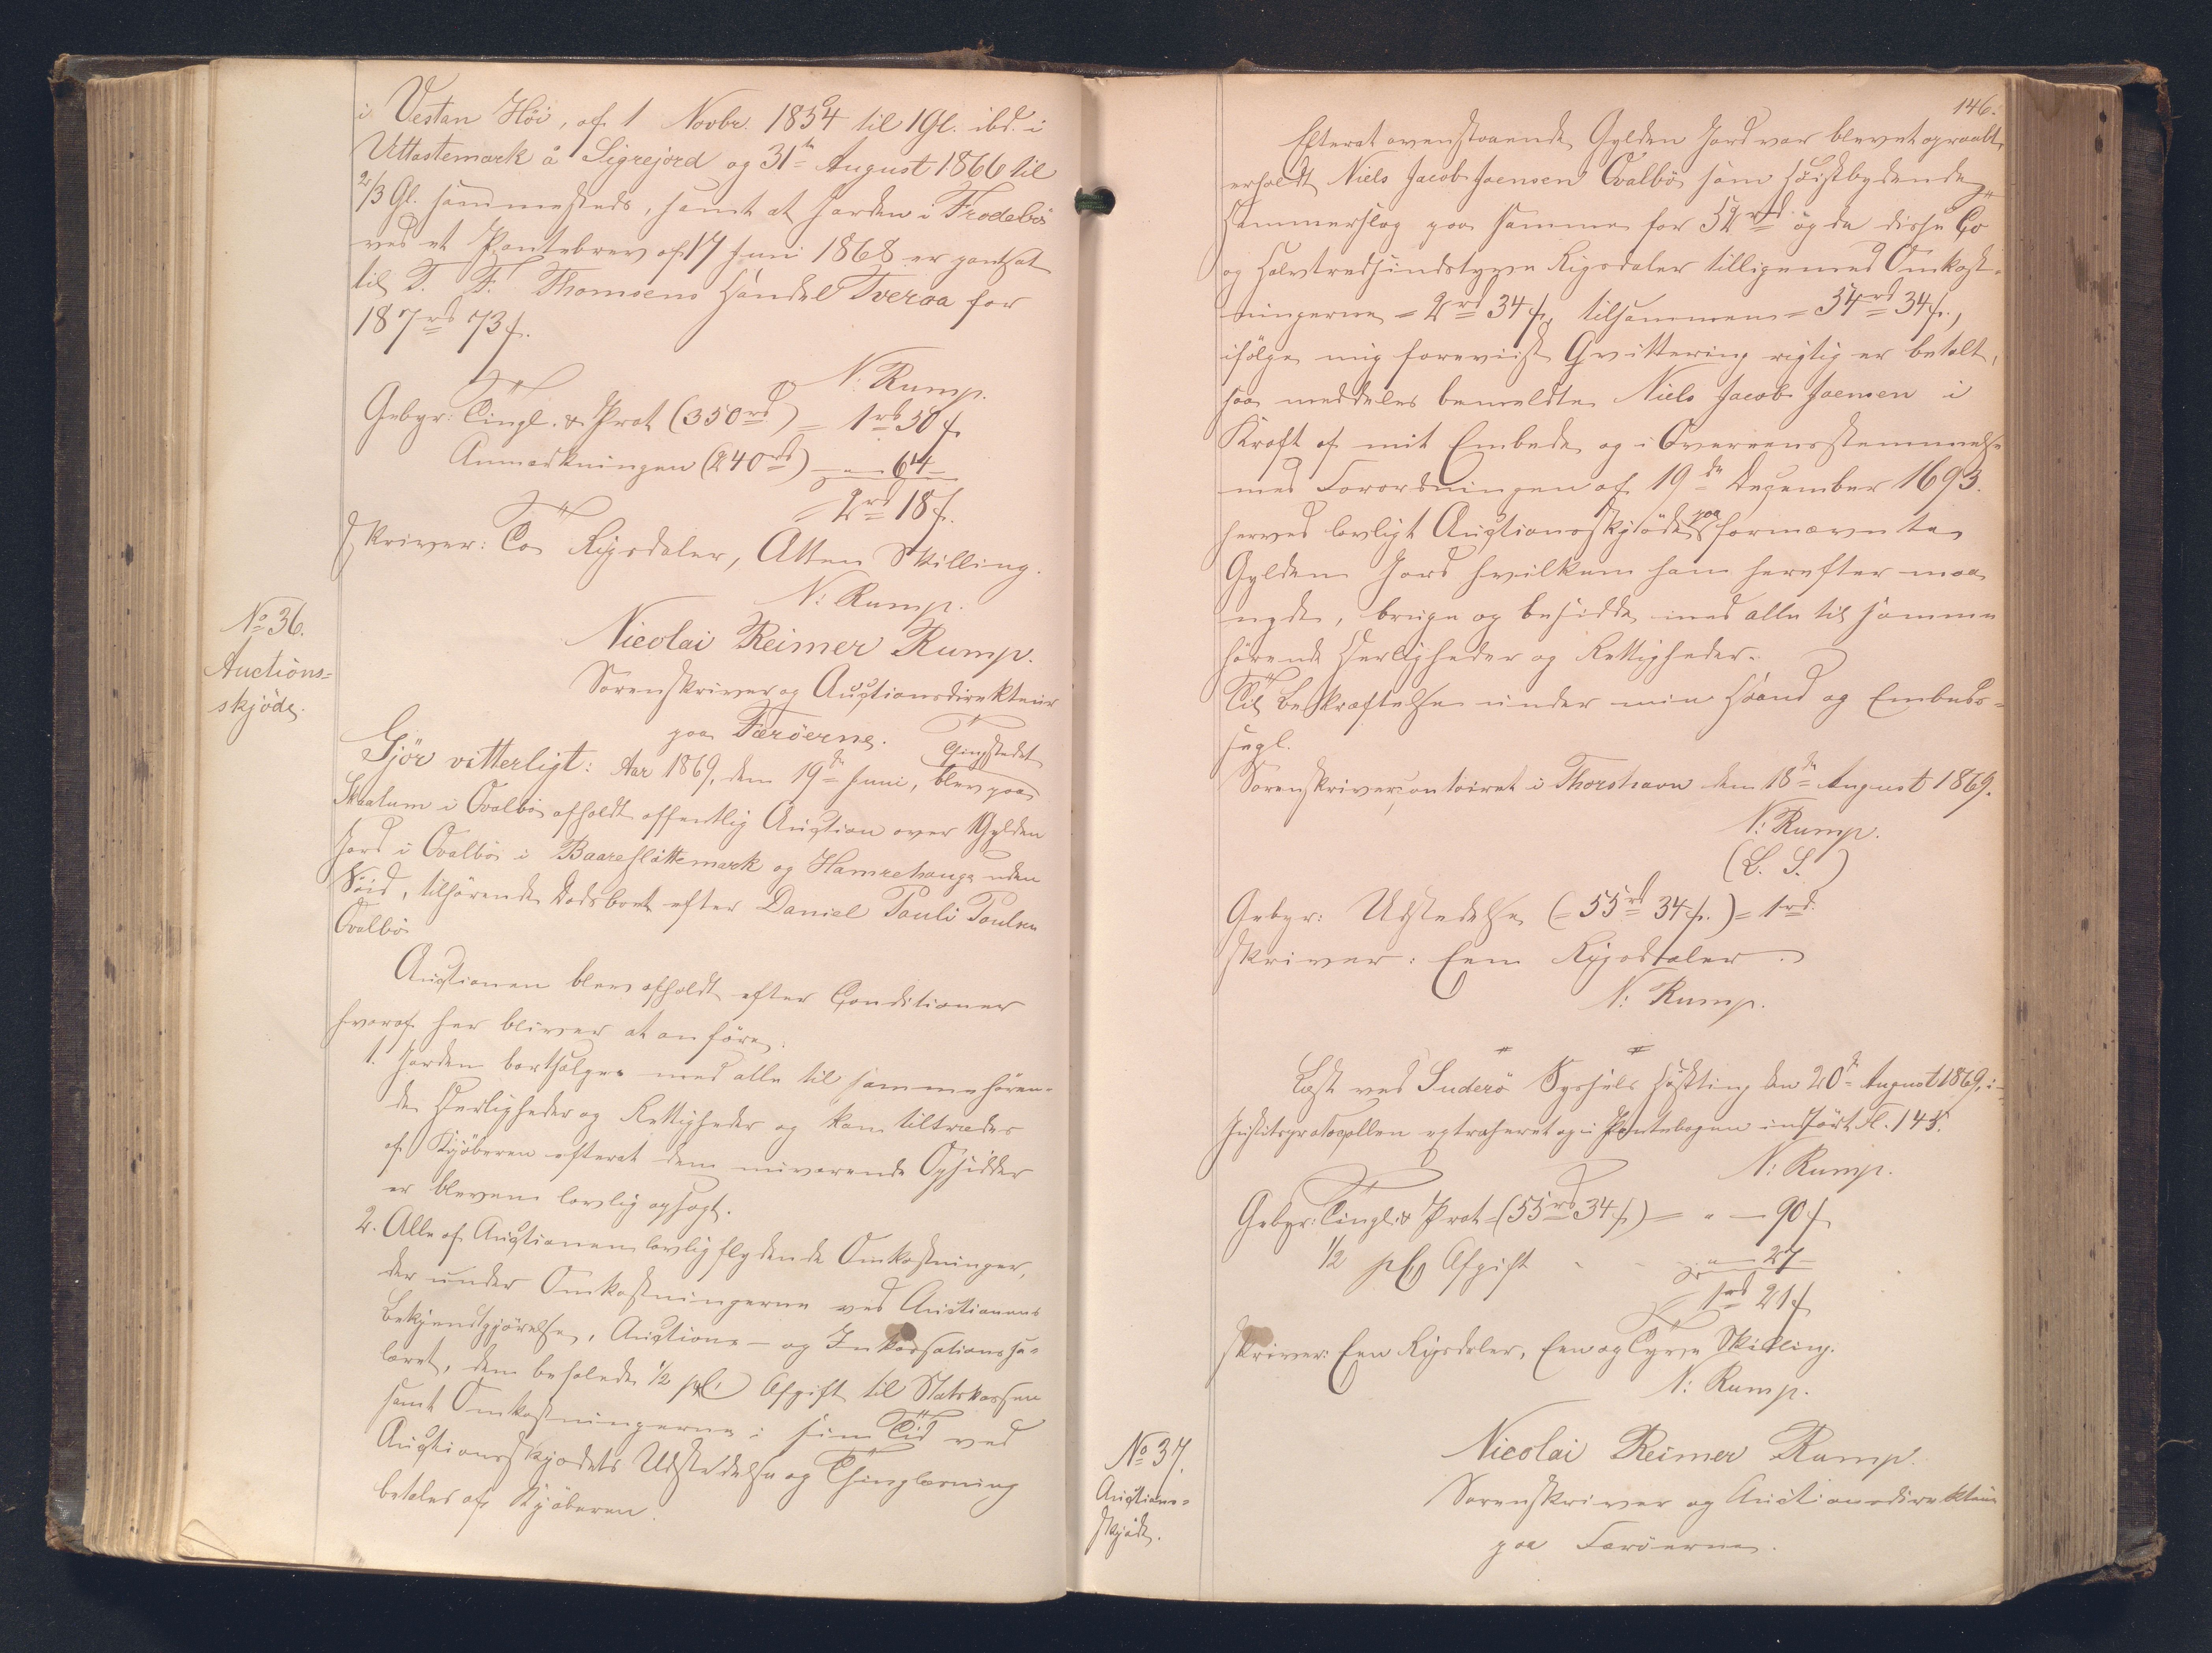 i Vestan Höi, af 1 Novbr. 1854 til 1 Gl. ibd. i
Uttastemark å Sigrejord og 31te August 1866 til
2/3 Gl. sammesteds, samt at Jorden i Frodebö
ved et Pantebrev af 17 Juni 1868 er pantsat
til T. F. Thomsens Handel Tveraa for
187rd 73 s.
N: Rump.
Gebyr: Tingl. & Prot (350rd) = 1rd 50 s.
Anmærkningen (240rd) — " — 64
= 2rd 18 s.
skriver: To Rigsdaler, Atten Skilling.
N: Rump.
No 36.
Auctions-
skjöde.
Nicolai Reimer Rump.
Sorenskriver og Auctionsdirekteur
paa Færöerne.
Gjör vitterligt: Aar 1869, den 19de Juni, blev paa Thingstedet
Skaalum i Qvalbö afholdt offentlig Auction over 1 Gylden
Jord i Qvalbö i Baareslättemark og Hamrehauge uden
Söid, tilhörende Dödsboet efter Daniel Pauli Poulsen
Qvalbö
Auctionen blev afholdt efter Conditioner
hvoraf her bliver at anföre:
1. Jorden bortsælges med alle til samme hören-
de Herligheder og Rettigheder og kan tiltrædes
af Kjöberen efterat den nuværende Opsidder
er bleven lovlig opsagt.
2. Alle af Auctionen lovlig flydende Omkostninger,
der under Omkostningerne ved Auctionens
Bekjendtgjörelse, Auctions- og Inkassationssa-
læret, den befalede 1/2 pCt Afgift til Statskassen
samt Omkostningerne i sin Tid ved
Auctionsskjödets Udstedelse og Thinglæsning
betales af Kjöberen.
146.
Efterat ovenstaaende Gylden Jord var blevet opraabt,
erholdt Niels Jacob Joensen Qvalbö som höistbydende
Hammerslag paa samme for 52rd og da disse To
og halvtredsindstyve Rigsdaler tilligemed Omkost-
ningerne = 2rd 34 s, tilsammen = 54rd 34 s.,
ifölge mig foreviist Qvittering rigtig er betalt,
saa meddeles bemeldte Niels Jacob Joensen i
Kraft af mit Embede og i Overeensstemmelse
med Forordningen af 19de December 1693.
herved lovligt Auctionsskjöde paa fornævnte
Gylden Jord hvilken han herefter maa
nyde, bruge og besidde med alle til samme
hörende Herligheder og Rettigheder.
Til Bekræftelse under min Haand og Embeds-
segl.
Sorenskrivercontoiret i Thorshavn den 18de August 1869.
N: Rump.
(L. S.)
Gebyr: Udstedelse (= 55rd 34 s.) = 1rd.
skriver: Een Rigsdaler.
N: Rump.
Læst ved Suderö Syssels Høstting den 20de August 1869, i
Justitsprotocollen extraheret og i Pantebogen indfört Fl. 145.
N: Rump.
Gebyr: Tingl. & Prot = (55rd 34 s) = " — 90 s
1/2 pCt Afgift - - " — 27
1rd 21 s
skriver: Een Rigsdaler, Een og Tyve Skilling.
N: Rump.
No 37.
Auctions-
skjöde.
Nicolai Reimer Rump.
Sorenskriver og Auctionsdirekteur
paa Færöerne.